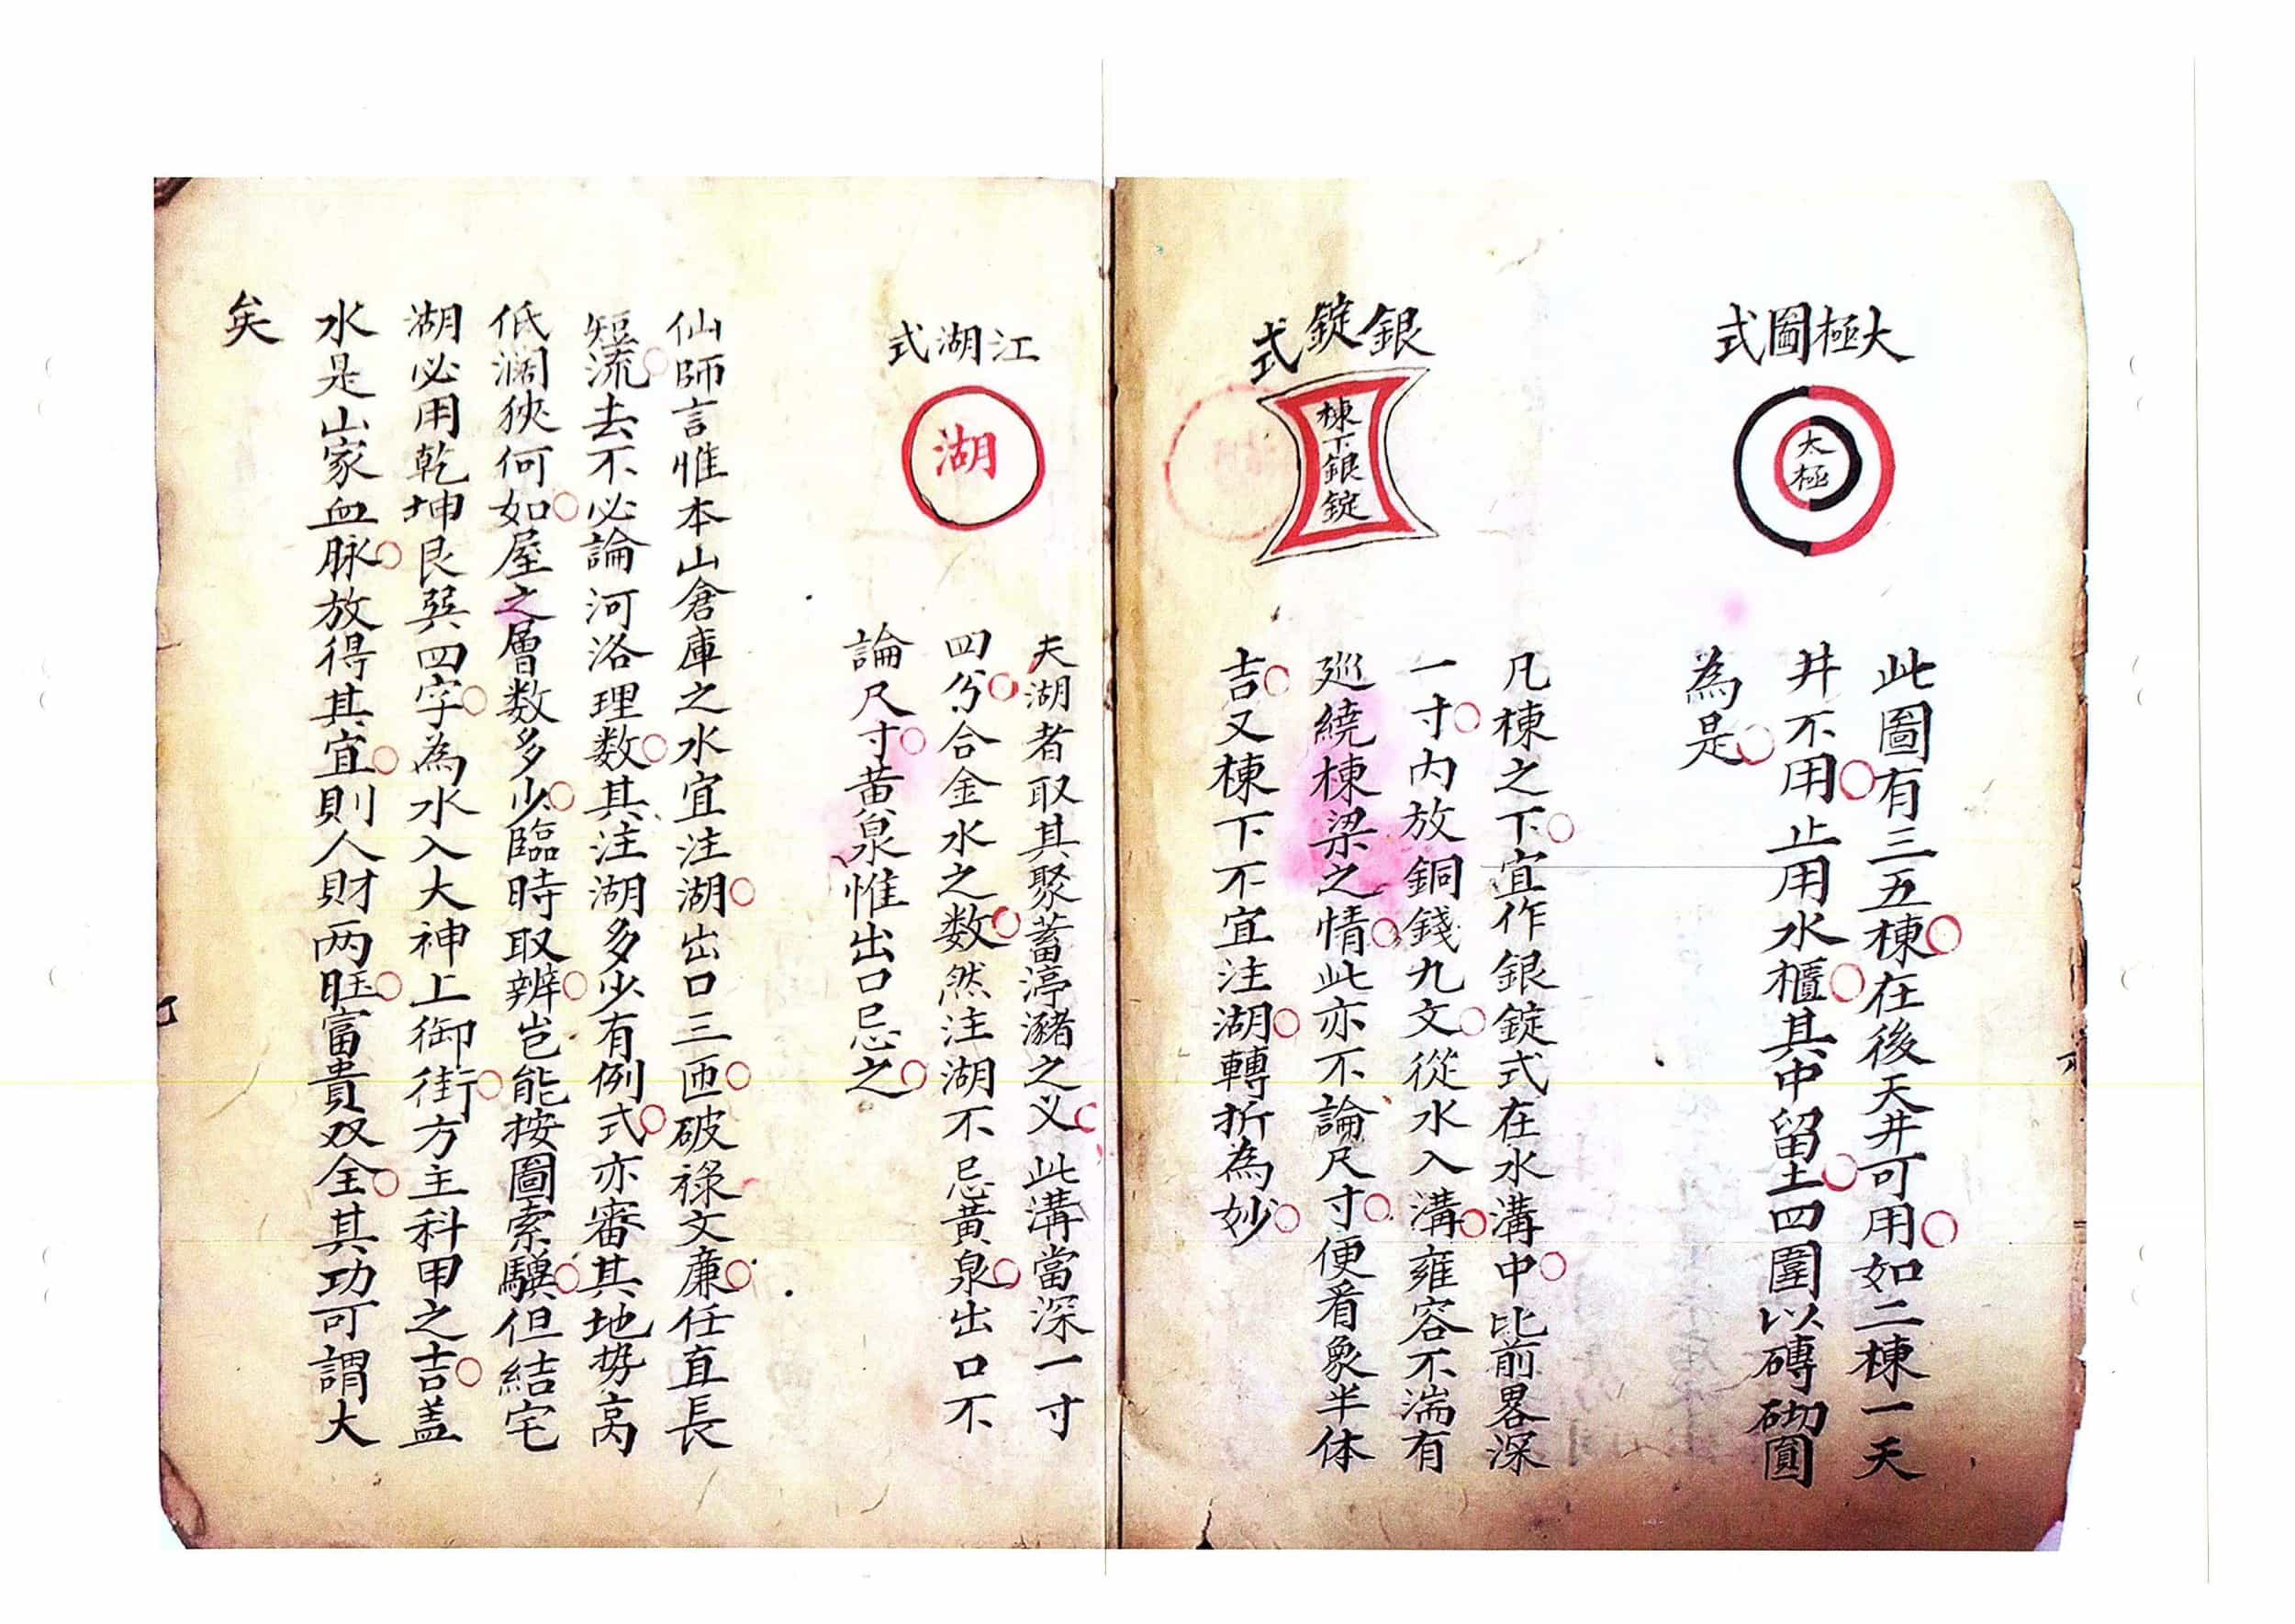 大極圖式
太
極
此圖有三五棟在後天井可用如二棟一天
井不用止用水櫃其中留土四圍以磚砌圓
為是
銀錠式
棟下銀錠
凡棟之下宜作銀錠式在水溝中比前畧深
一寸內放銅錢九文從水入溝雍容不湍有
廵繞棟梁之情此亦不論尺寸便看象半体
吉又棟下不宜注湖轉折為妙
江湖式
湖
夫湖者取其聚蓄渟瀦之义此溝當深一寸
四分合金水之数然注湖不忌黃泉出口不
論尺寸黃泉惟出口忌之
仙師言惟本山倉庫之水宜注湖出口三匝破祿文廉任直長
短流去不必論河洛理数其注湖多少有例式亦審其地势高
低濶狹何如屋之層数多少臨時取辨岂能按圖索驥但結宅
湖必用乾坤艮巽四字為水入大神上御街方主科甲之吉盖
水是山家血脉放得其宜則人財两旺富貴双全其功可謂大
矣